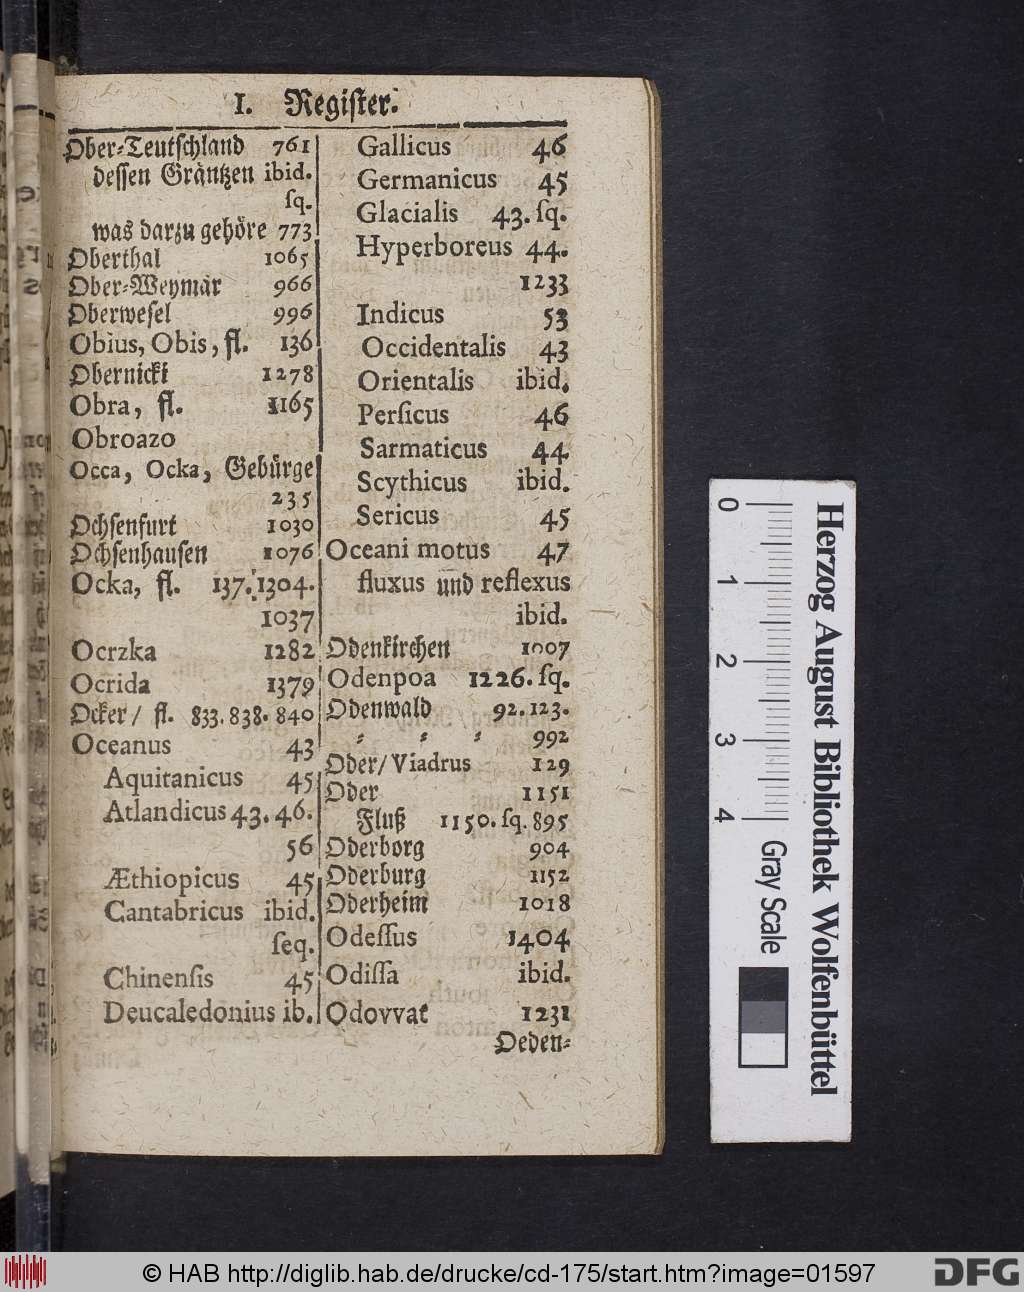 I. Regiſter.
Ober-Teutſchland 761
deſſen Gräntzen ibid.
ſq.
was darzu gehöre 773
Oberthal 1065
Ober-Weymar 966
Oberweſel 996
Obius, Obis, fl. 136
Obernicki 1278
Obra, fl. 1165
Obroazo
Occa, Ocka, Gebürge
235
Ochſenfurt 1030
Ochſenhauſen 1076
Ocka, fl. 137. 1304.
1037
Ocrzka 1282
Ocrida 1379
Ocker / fl. 833. 838. 840
Oceanus 43
Aquitanicus 45
Atlandicus 43. 46.
56
Æthiopicus 45
Cantabricus ibid.
ſeq.
Chinenſis 45
Deucaledonius ib.
Gallicus 46
Germanicus 45
Glacialis 43. ſq.
Hyperboreus 44.
1233
Indicus 53
Occidentalis 43
Orientalis ibid.
Perſicus 46
Sarmaticus 44
Scythicus ibid.
Sericus 45
Oceani motus 47
fluxus und reflexus
ibid.
Odenkirchen 1007
Odenpoa 1226. ſq.
Odenwald 92. 123.
- - - 992
Oder / Viadrus 129
Oder 1151
Fluß 1150. ſq. 895
Oderborg 904
Oderburg 1152
Oderheim 1018
Odeſſus 1404
Odiſſa ibid.
Odovvat 1231
Oeden-
0 1 2 3 4
Gray Scale
Herzog August Bibliothek Wolfenbüttel
© HAB http://diglib.hab.de/drucke/cd-175/start.htm?image=01597
DFG